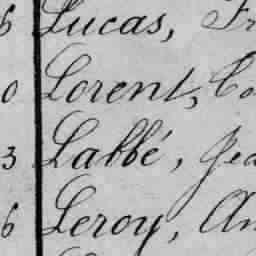 6 Lucas, Fr
0 Lorent, Co
3 Labbé, Jea
6 Leroy, An